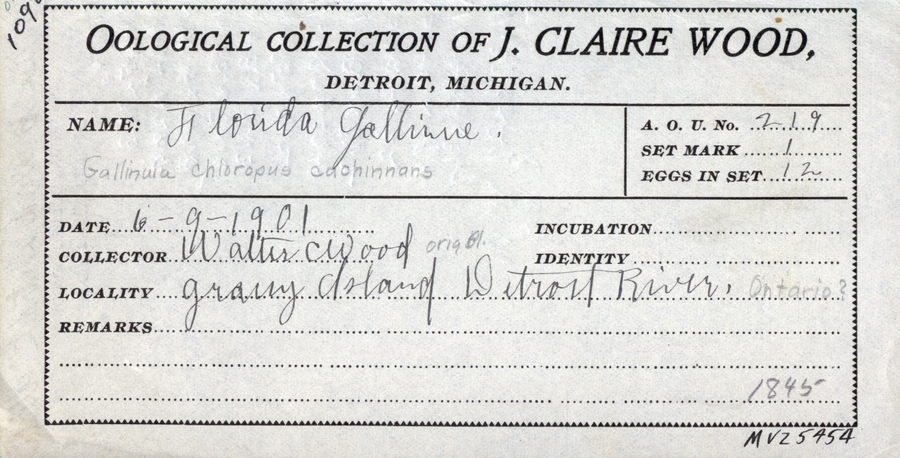 109
OOLOGICAL COLLECTION OF J. CLAIRE WOOD,
DETROIT, MICHIGAN.
NAME: Florida Gallinue.
Gallinula chloropus cachinnans
A. O. U. No. 219
SET MARK 1
EGGS IN SET. 12
DATE 6-9-1901
INCUBATION
COLLECTOR Walter C Wood orig
IDENTITY
LOCALITY grassy Island Detroit River. Ontario?
REMARKS
1845
MVZ 5454